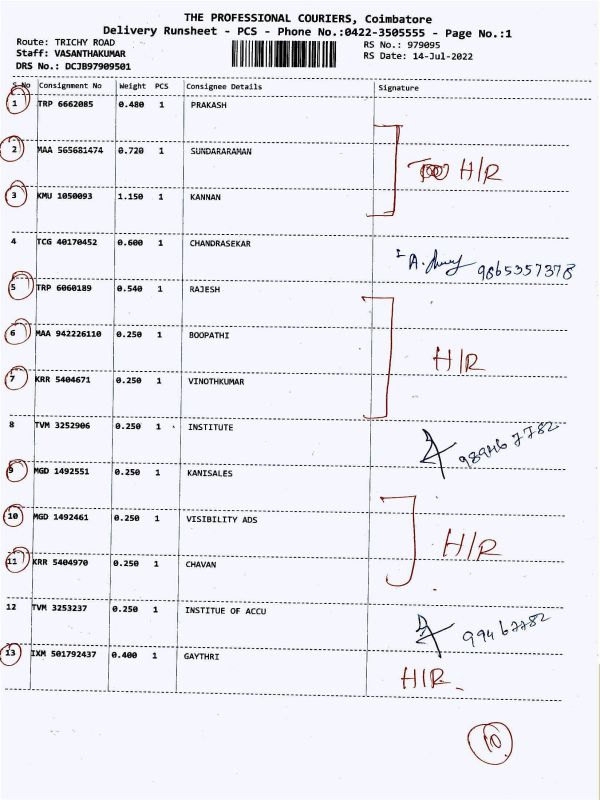 THE PROFESSIONAL COURIERS, Coimbatore
Delivery Runsheet - PCS - Phone No.:0422-3505555 - Page No.:1
Route: TRICHY ROAD
Staff: VASANTHAKUMAR
DRS No.: DCJB97909501
RS No.: 979095
RS Date: 14-Jul-2022
S.No Consignment No Weight PCS Consignee Details Signature
1 TRP 6662085 0.480 1 PRAKASH
2 MAA 565681474 0.720 1 SUNDARARAMAN
H/R
3 KMU 1050093 1.150 1 KANNAN
4 TCG 40170452 0.600 1 CHANDRASEKAR 9865357378
5 TRP 6060189 0.540 1 RAJESH
6 MAA 942226110 0.250 1 BOOPATHI
H/R
7 KRR 5404671 0.250 1 VINOTHKUMAR
8 TVM 3252906 0.250 1 INSTITUTE
9 MGD 1492551 0.250 1 KANISALES
10 MGD 1492461 0.250 1 VISIBILITY ADS
H/R
11 KRR 5404970 0.250 1 CHAVAN
12 TVM 3253237 0.250 1 INSTITUE OF ACCU
13 IXM 501792437 0.400 1 GAYTHRI
H/R.
10